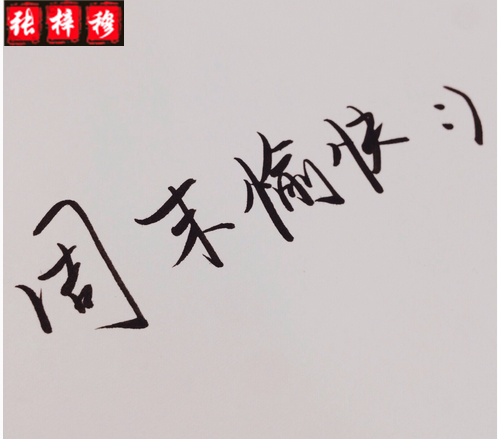 张梓穆
周末愉快:)